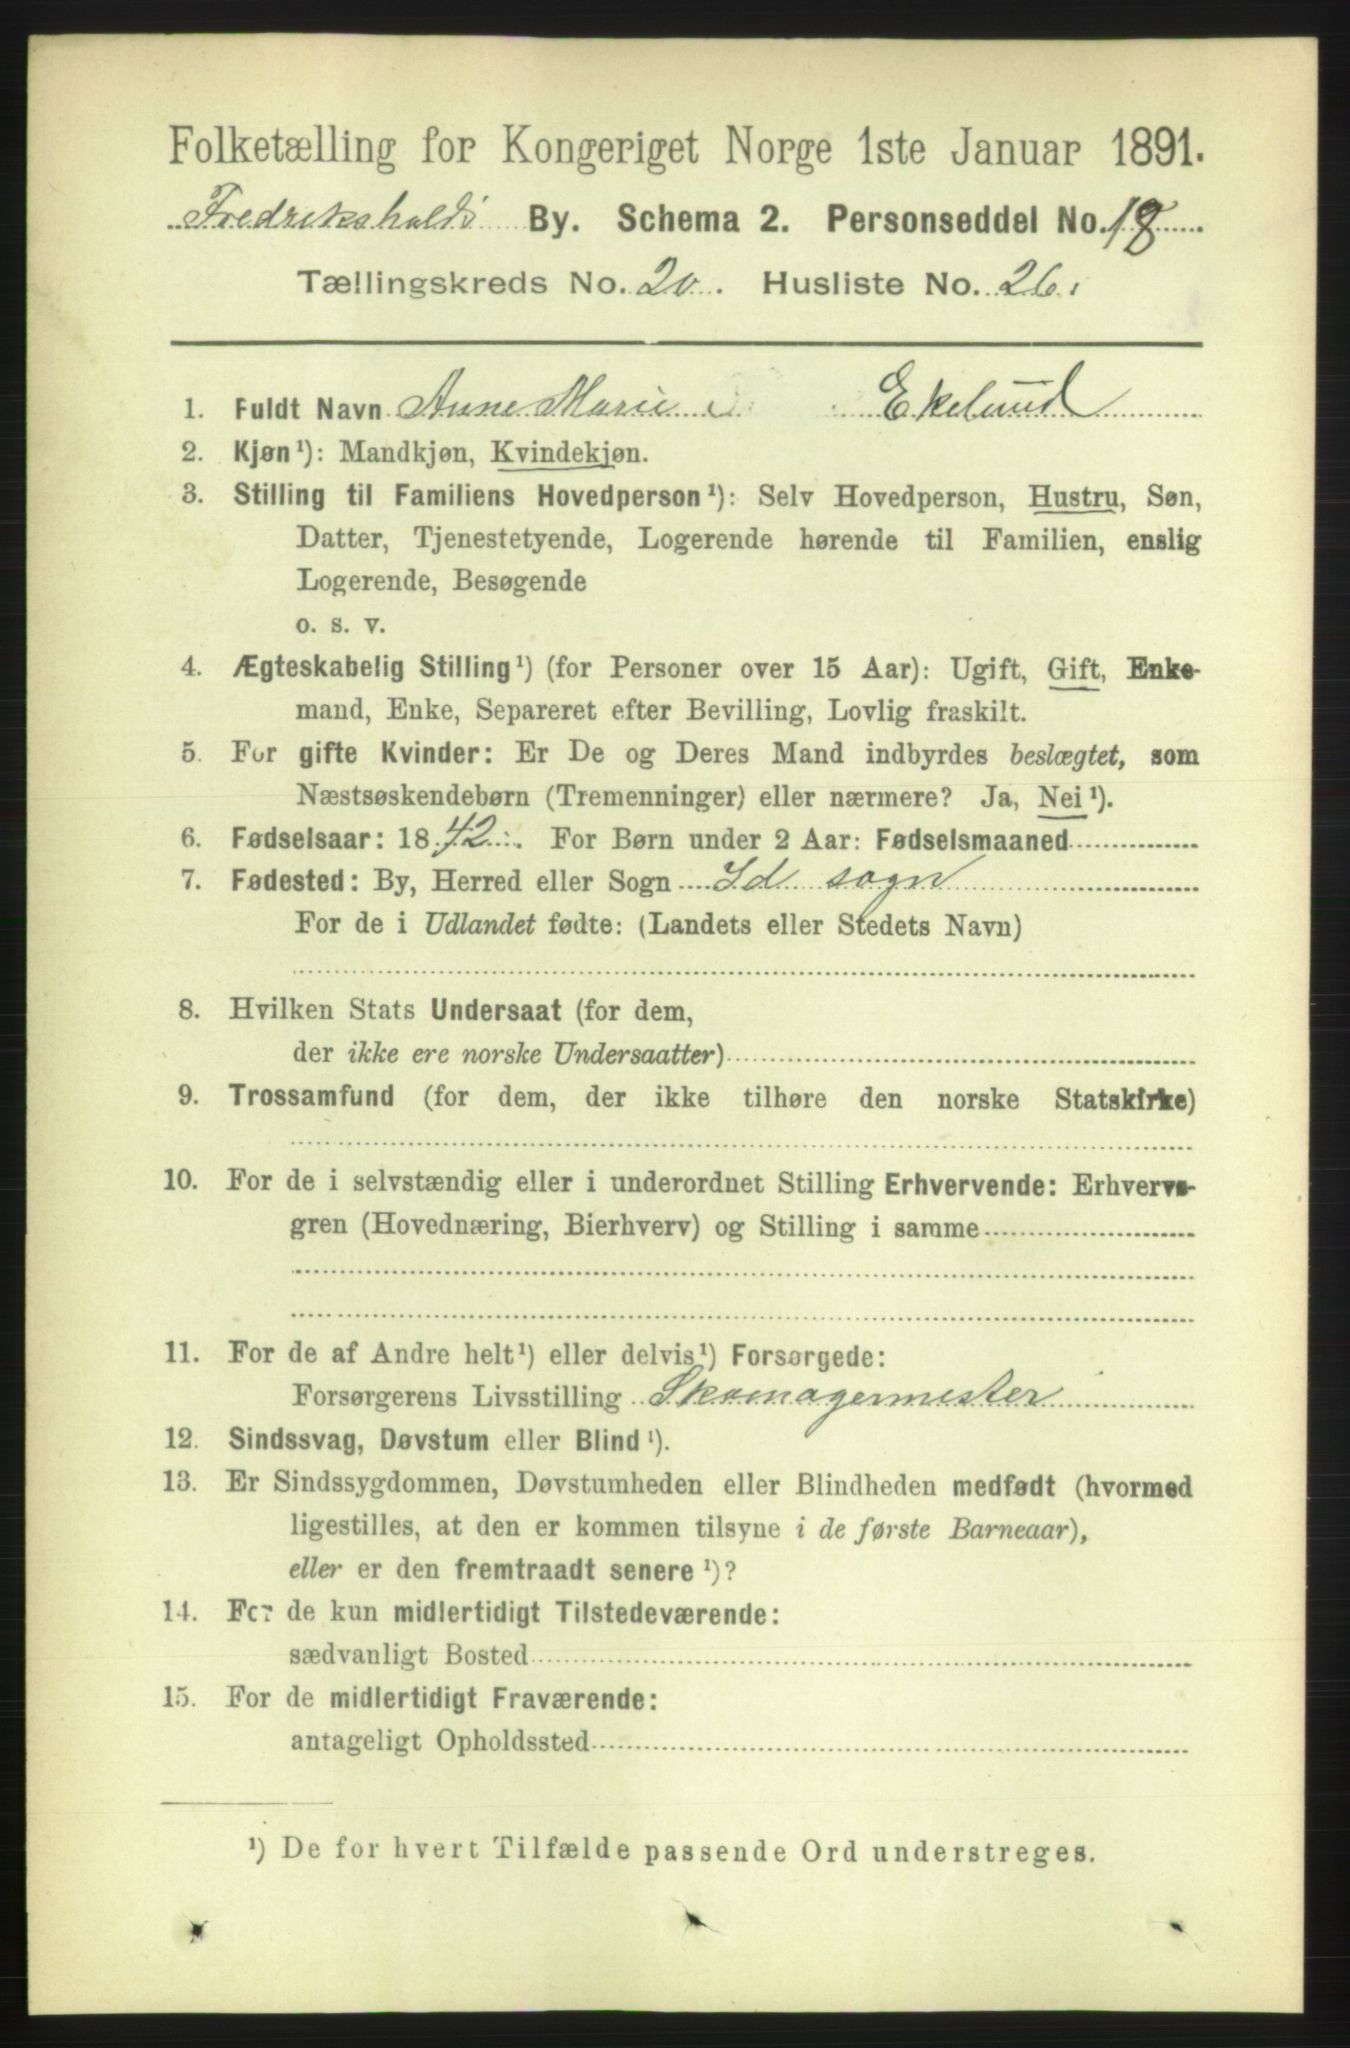 Folketælling for Kongeriget Norge 1ste Januar 1891.
Fredrikshalds By. Schema 2. Personseddel No. 18
Tællingskreds No. 20. Husliste No. 26.
1. Fuldt Navn Anne Marie Ekelund
2. Kjøn¹): Mandkjøn, Kvindekjøn.
3. Stilling til Familiens Hovedperson¹): Selv Hovedperson, Hustru, Søn,
Datter, Tjenestetyende, Logerende hørende til Familien, enslig
Logerende, Besøgende
o. s. v.
4. Ægteskabelig Stilling¹) (for Personer over 15 Aar): Ugift, Gift, Enke-
mand, Enke, Separeret efter Bevilling, Lovlig fraskilt.
5. For gifte Kvinder: Er De og Deres Mand indbyrdes beslægtet, som
Næstsøskendebørn (Tremenninger) eller nærmere? Ja, Nei¹).
6. Fødselsaar: 1842. For Børn under 2 Aar: Fødselsmaaned
7. Fødested: By, Herred eller Sogn Id sogn
For de i Udlandet fødte: (Landets eller Stedets Navn)
8. Hvilken Stats Undersaat (for dem,
der ikke ere norske Undersaatter)
9. Trossamfund (for dem, der ikke tilhøre den norske Statskirke)
10. For de i selvstændig eller i underordnet Stilling Erhvervende: Erhvervs-
gren (Hovednæring, Bierhverv) og Stilling i samme
11. For de af Andre helt¹) eller delvis¹) Forsørgede:
Forsørgerens Livsstilling Skomagermester
12. Sindssvag, Døvstum eller Blind¹).
13. Er Sindssygdommen, Døvstumheden eller Blindheden medfødt (hvormed
ligestilles, at den er kommen tilsyne i de første Barneaar),
eller er den fremtraadt senere¹)?
14. For de kun midlertidigt Tilstedeværende:
sædvanligt Bosted
15. For de midlertidigt Fraværende:
antageligt Opholdssted
¹) De for hvert Tilfælde passende Ord understreges.